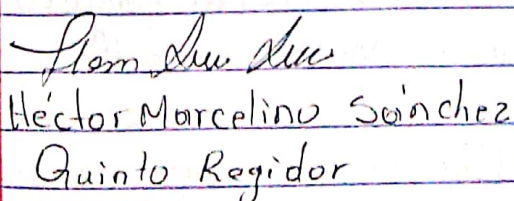 Héctor Marcelino Sánchez
Quinto Regidor